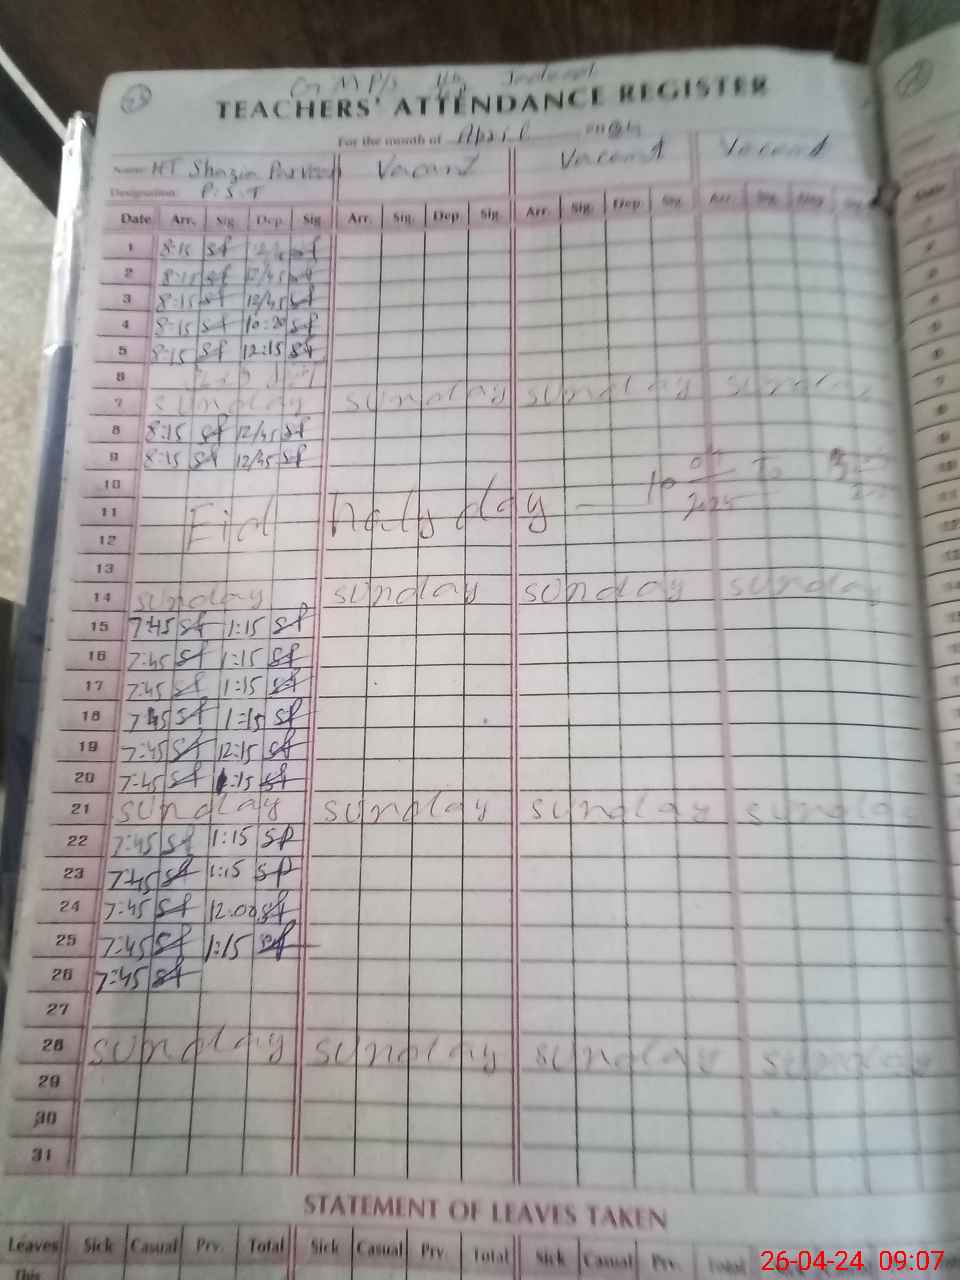 TEACHERS' ATTENDANCE REGISTER
For the month of April
Name HT Shazia Parveen Vacant Vacant Vacant
Designation: P.S.T
Date Arr. Sig. Dep. Sig Arr. Sig. Dep. Sig. Arr. Sig. Dep. Sig. Arr. Sig.
1 8:15 Sf Sf
2 8:15 Sf 12/45 Sf
3 8:15 Sf 12/45 Sf
4 8:15 Sf 10:20 Sf
5 8:15 Sf 12:15 Sf
6
7 sunday sunday sunday sunday
8 8:15 Sf 12/45 Sf
9 8:15 Sf 12/45 Sf
10
11 Eid holyday - 10 To
12
13
14 sunday sunday sunday sunday
15 7:45 Sf 1:15 Sf
16 7:45 Sf 1:15 Sf
17 7:45 Sf 1:15 Sf
18 7:45 Sf 1:15 Sf
19 7:45 Sf 12:15 Sf
20 7:45 Sf 1:15 Sf
21 sunday sunday sunday sunday
22 7:45 Sf 1:15 Sf
23 7:45 Sf 1:15 Sf
24 7:45 Sf 12:00 Sf
25 7:45 Sf 1:15 Sf
26 7:45 Sf
27
28 sunday sunday sunday sunday
29
30
31
STATEMENT OF LEAVES TAKEN
Leaves Sick Casual Prv. Total Sick Casual Prv. Total Sick Casual Prv. Total
This
26-04-24 09:07